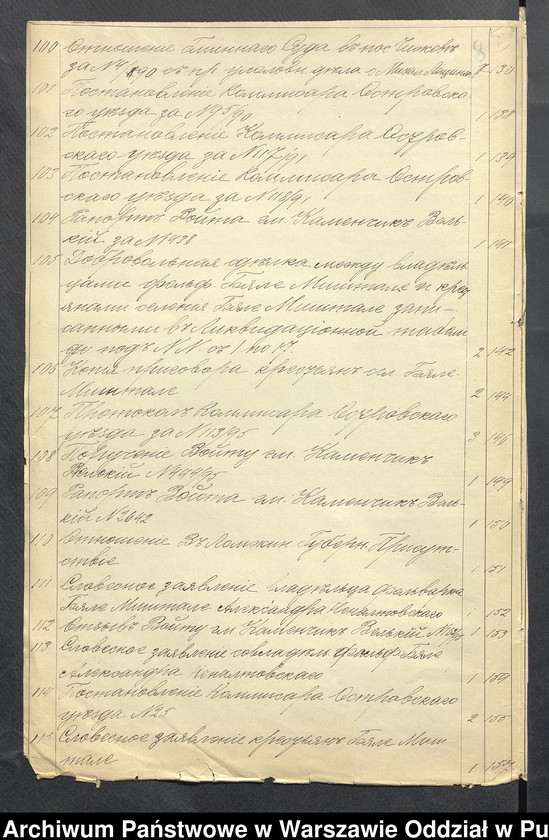 100 Отношение Гминнаго Суда въ пос. Чижевъ
за № 4/190 съ пр. уголовн. дѣла о 7 130
101 Постановленіе Коммисара Островска-
го уѣзда за № 1 138
102 Постановленіе Коммисара Остров-
скаго уѣзда за № 117/91 1 139
103 Постановленіе Коммисара Остров-
скаго уѣзда за № 118/91 1 140
104 Рапортъ Войта гм. Каменчикъ Вель-
кій за № 1438 1 141
105 Добровольная сдѣлка между владѣль-
цами фольв. Бяле Миштале и кресть-
янами селенія Бяле Миштале запи-
санными въ Ликвидаціонной табели
подъ №№ съ 1 по 17. 2 142
106 Копія приговора крестьян сел. Бяле
Миштале 2 144
107 Протоколъ Коммисара Островскаго
уѣзда за № 113/95 3 146
108 Порученіе Войту гм. Каменчикъ
Велькій № 444/95 1 149
109 Рапортъ Войта гм. Каменчикъ Вель-
кій № 2642 1 150
110 Отношеніе въ Ломжин. Губерн. Присут-
ствіе 1 151
111 Словесное заявленіе владѣльца фольварка
Бяле Миштале Александра 1 152
112 Отзывъ Войту гм. Каменчикъ Велькій № 1 153
113 Словесное заявленіе совладѣль. фольв. Бяле
Александра 1 154
114 Постановленіе Коммисара Островскаго
уѣзда № 25 2 155
115 Словесное заявленіе крестьянъ Бяле Миш-
тале 1 157
Archiwum Państwowe w Warszawie Oddział w Pu